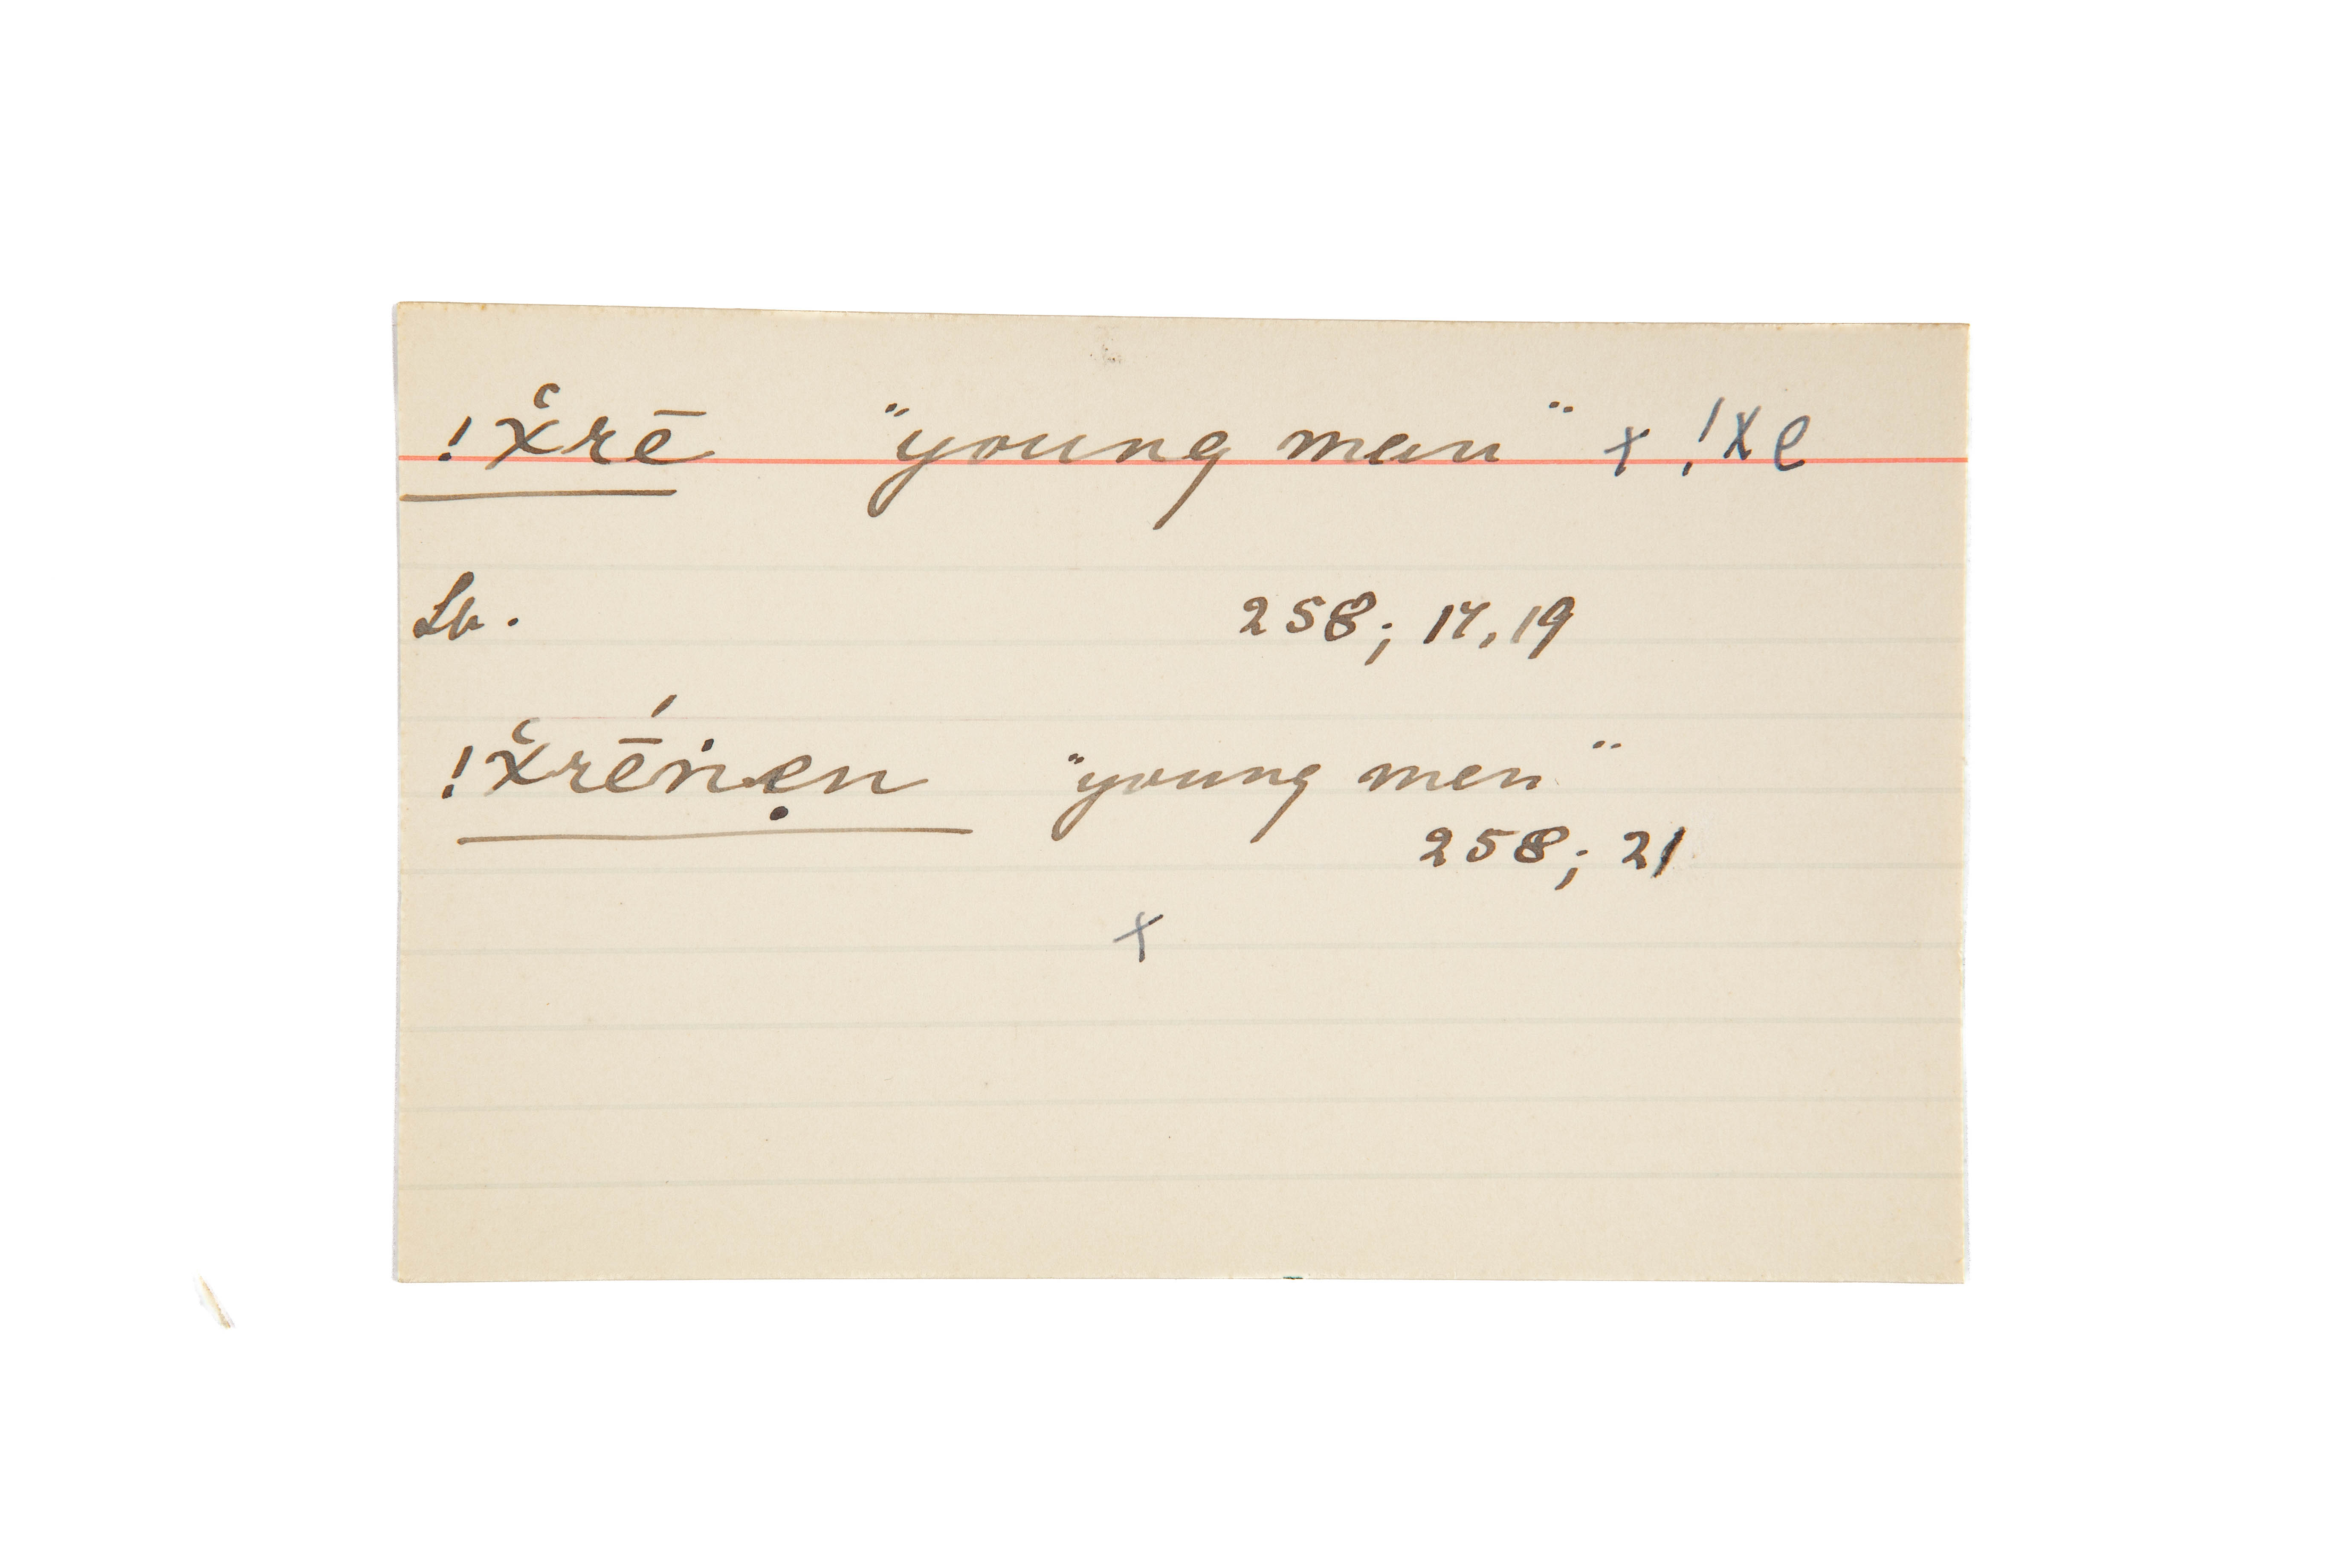 !x̔rē "young man" x !xe
Lb. 258; 17, 19
!x̔rḗṅẹn "young men"
258; 21
x